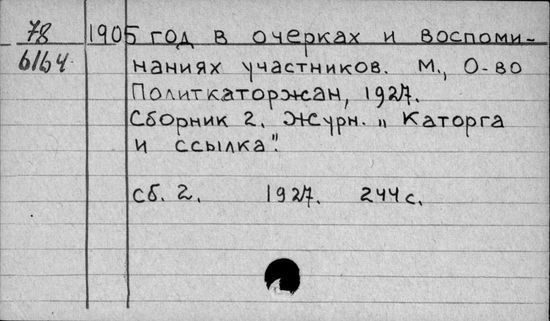 78 1905 год в очерках и воспоми-
6164 наниях участников. М., О-во
Политкаторжан, 1927.
Сборник 2. Журн. „Каторга
и ссылка".
сб. 2. 1927. 244 с.